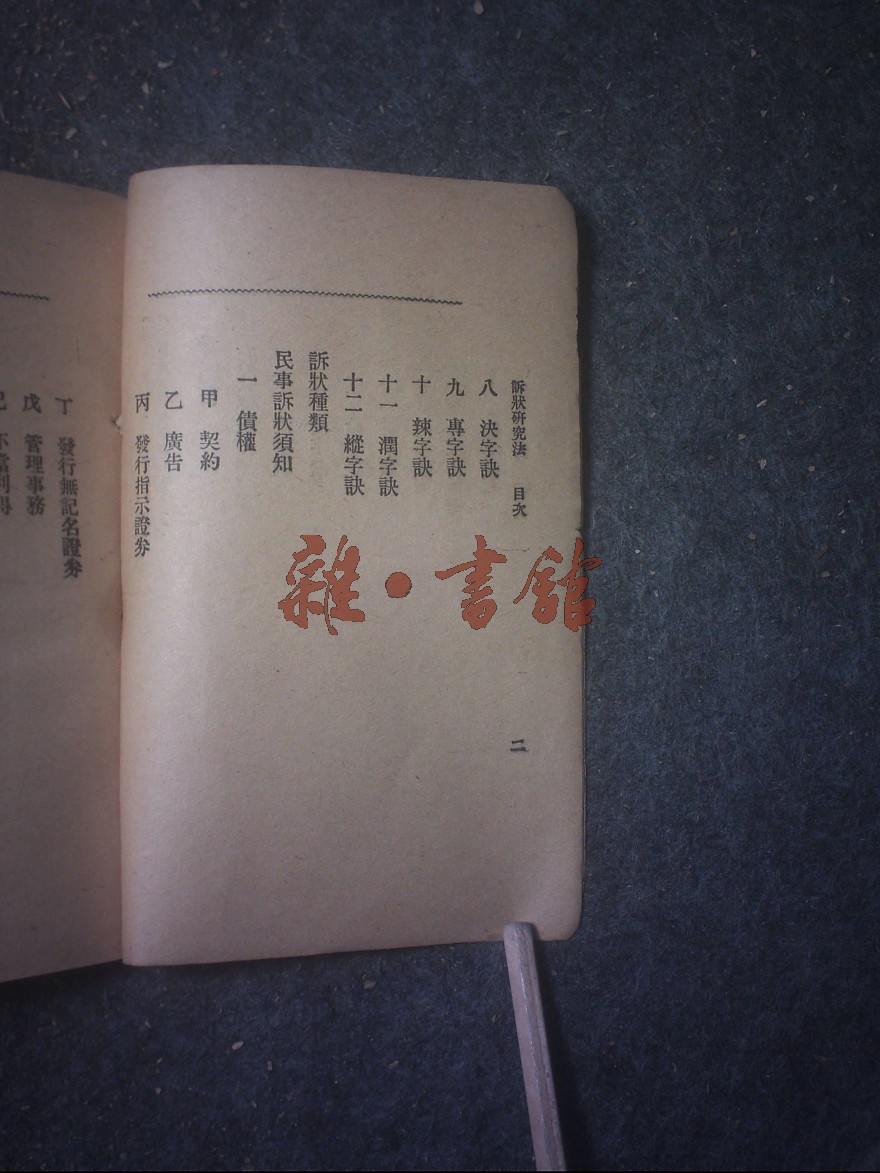 訴狀研究法　目次　二
八　決字訣
九　專字訣
十　辣字訣
十一　潤字訣
十二　縱字訣
訴狀種類
民事訴狀須知
一　債權
甲　契約
乙　廣告
丙　發行指示證券
丁　發行無記名證券
戊　管理事務
己　不當利得
雜・書館